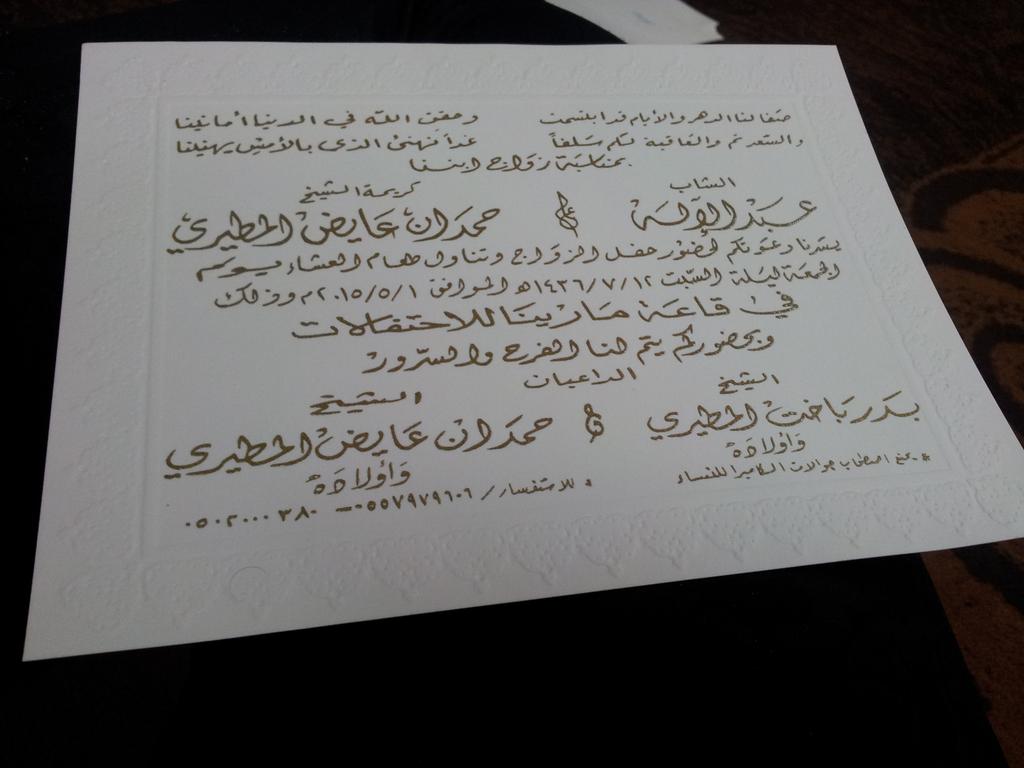 صفا لنا الدهر والأيام قد ابتسمت وحقق الله في الدنيا أمانينا
والسعد تم والعاقبة لكم سلفاً غداً نهنئ الذي بالأمس يهنينا
بمناسبة زواج ابننا
الشاب كريمة الشيخ
عبد الإله على حمدان عايض المطيري
يسرنا دعوتكم لحضور حفل الزواج وتناول طعام العشاء يوم
الجمعة ليلة السبت ١٤٣٦/٧/١٢هـ الموافق ٢٠١٥/٥/١م وذلك
في قاعة مارينا للاحتفالات
وبحضوركم يتم لنا الفرح والسرور
الداعيان
الشيخ الشيخ
بدر باخت المطيري و حمدان عايض المطيري
وأولاده وأولاده
* يمنع اصطحاب جوالات الكاميرا للنساء * للاستفسار / ٠٥٥٧٩٧٩٦٠٦ – ٠٥٠٢٠٠٠٣٨٠